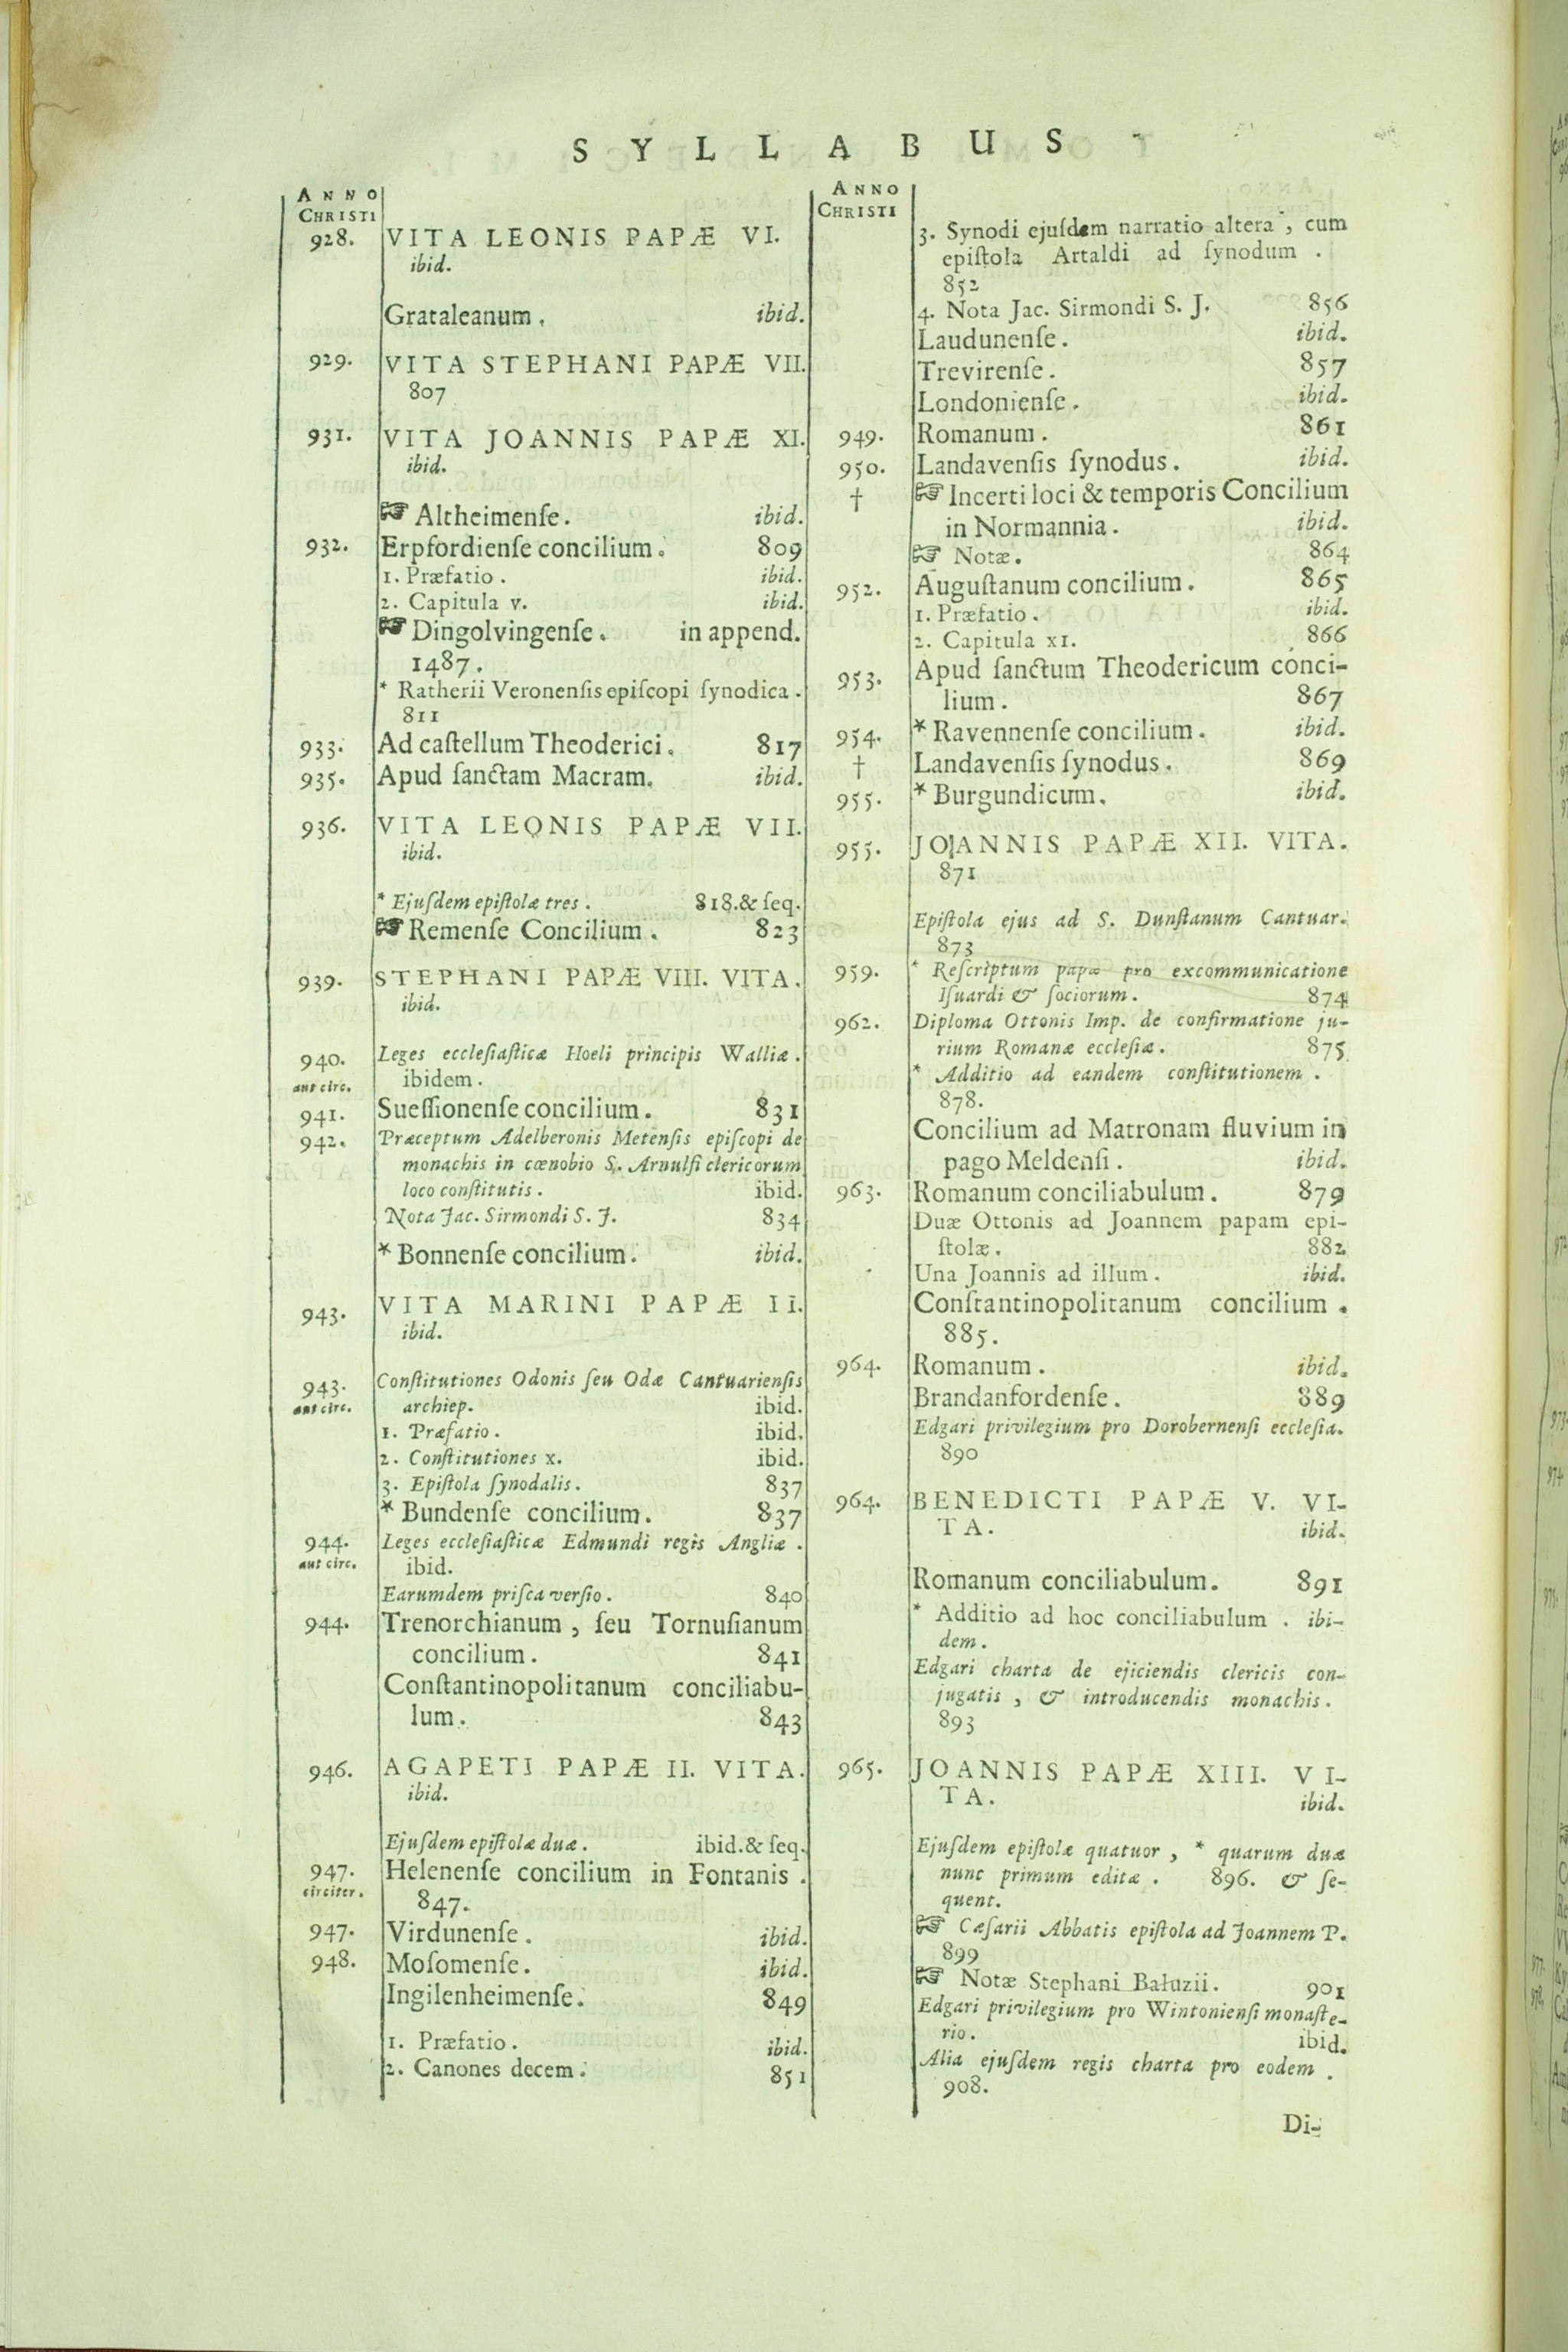 SYLLABUS
ANNO
CHRISTI
928. VITA LEONIS PAPÆ VI.
ibid.
Grataleanum. ibid.
929. VITA STEPHANI PAPÆ VII.
807
931. VITA JOANNIS PAPÆ XI.
ibid.
☞ Altheimenſe. ibid.
932. Erpfordienſe concilium. 809
1. Præfatio. ibid.
2. Capitula v. ibid.
☞ Dingolvingenſe. in append.
1487.
* Ratherii Veronenſis epiſcopi ſynodica.
811
933. Ad caſtellum Theoderici. 817
935. Apud ſanctam Macram. ibid.
936. VITA LEONIS PAPÆ VII.
ibid.
* Ejuſdem epiſtolæ tres. 818.& ſeq.
☞ Remenſe Concilium. 823
939. STEPHANI PAPÆ VIII. VITA.
ibid.
940. Leges eccleſiaſticæ Hoeli principis Walliæ.
aut circ. ibidem.
941. Sueſſionenſe concilium. 831
942. Præceptum Adelberonis Metenſis epiſcopi de
monachis in cœnobio S. Arnulfi clericorum
loco conſtitutis. ibid.
Nota Jac. Sirmondi S. J. 834
* Bonnenſe concilium. ibid.
943. VITA MARINI PAPÆ II.
ibid.
943. Conſtitutiones Odonis ſeu Odæ Cantuarienſis
aut circ. archiep. ibid.
1. Præfatio. ibid.
2. Conſtitutiones x. ibid.
3. Epiſtola ſynodalis. 837
* Bundenſe concilium. 837
944. Leges eccleſiaſticæ Edmundi regis Angliæ.
aut circ. ibid.
Earumdem priſca verſio. 840
944. Trenorchianum, ſeu Tornuſianum
concilium. 841
Conſtantinopolitanum conciliabu-
lum. 843
946. AGAPETI PAPÆ II. VITA.
ibid.
Ejuſdem epiſtolæ duæ. ibid.& ſeq.
947. Helenenſe concilium in Fontanis.
circiter. 847.
947. Virdunenſe. ibid.
948. Moſomenſe. ibid.
Ingilenheimenſe. 849
1. Præfatio. ibid.
2. Canones decem. 851
ANNO
CHRISTI
3. Synodi ejuſdem narratio altera, cum
epiſtola Artaldi ad ſynodum.
852
4. Nota Jac. Sirmondi S. J. 856
Laudunenſe. ibid.
Trevirenſe. 857
Londonienſe. ibid.
949. Romanum. 861
950. Landavenſis ſynodus. ibid.
† ☞ Incerti loci & temporis Concilium
in Normannia. ibid.
☞ Notæ. 864
952. Auguſtanum concilium. 865
1. Præfatio. ibid.
2. Capitula xi. 866
953. Apud ſanctum Theodericum conci-
lium. 867
954. * Ravennenſe concilium. ibid.
† Landavenſis ſynodus. 869
955. * Burgundicum. ibid.
955. JOANNIS PAPÆ XII. VITA.
871
Epiſtola ejus ad S. Dunſtanum Cantuar.
873
959. * Reſcriptum papæ pro excommunicatione
Iſuardi & ſociorum. 874
962. Diploma Ottonis Imp. de confirmatione ju-
rium Romanæ eccleſiæ. 875
* Additio ad eandem conſtitutionem.
878.
Concilium ad Matronam fluvium in
pago Meldenſi. ibid.
963. Romanum conciliabulum. 879
Duæ Ottonis ad Joannem papam epi-
ſtolæ. 882
Una Joannis ad illum. ibid.
Conſtantinopolitanum concilium.
885.
964. Romanum. ibid.
Brandanfordenſe. 889
Edgari privilegium pro Dorobernenſi eccleſia.
890
964. BENEDICTI PAPÆ V. VI-
TA. ibid.
Romanum conciliabulum. 891
* Additio ad hoc conciliabulum. ibi-
dem.
Edgari charta de ejiciendis clericis con-
jugatis, & introducendis monachis.
893
965. JOANNIS PAPÆ XIII. VI-
TA. ibid.
Ejuſdem epiſtolæ quatuor, * quarum duæ
nunc primum editæ. 896. & ſe-
quent.
☞ Cæſarii Abbatis epiſtola ad Joannem P.
899
☞ Notæ Stephani Baluzii. 901
Edgari privilegium pro Wintonienſi monaſte-
rio. ibid.
Alia ejuſdem regis charta pro eodem.
908.
Di-